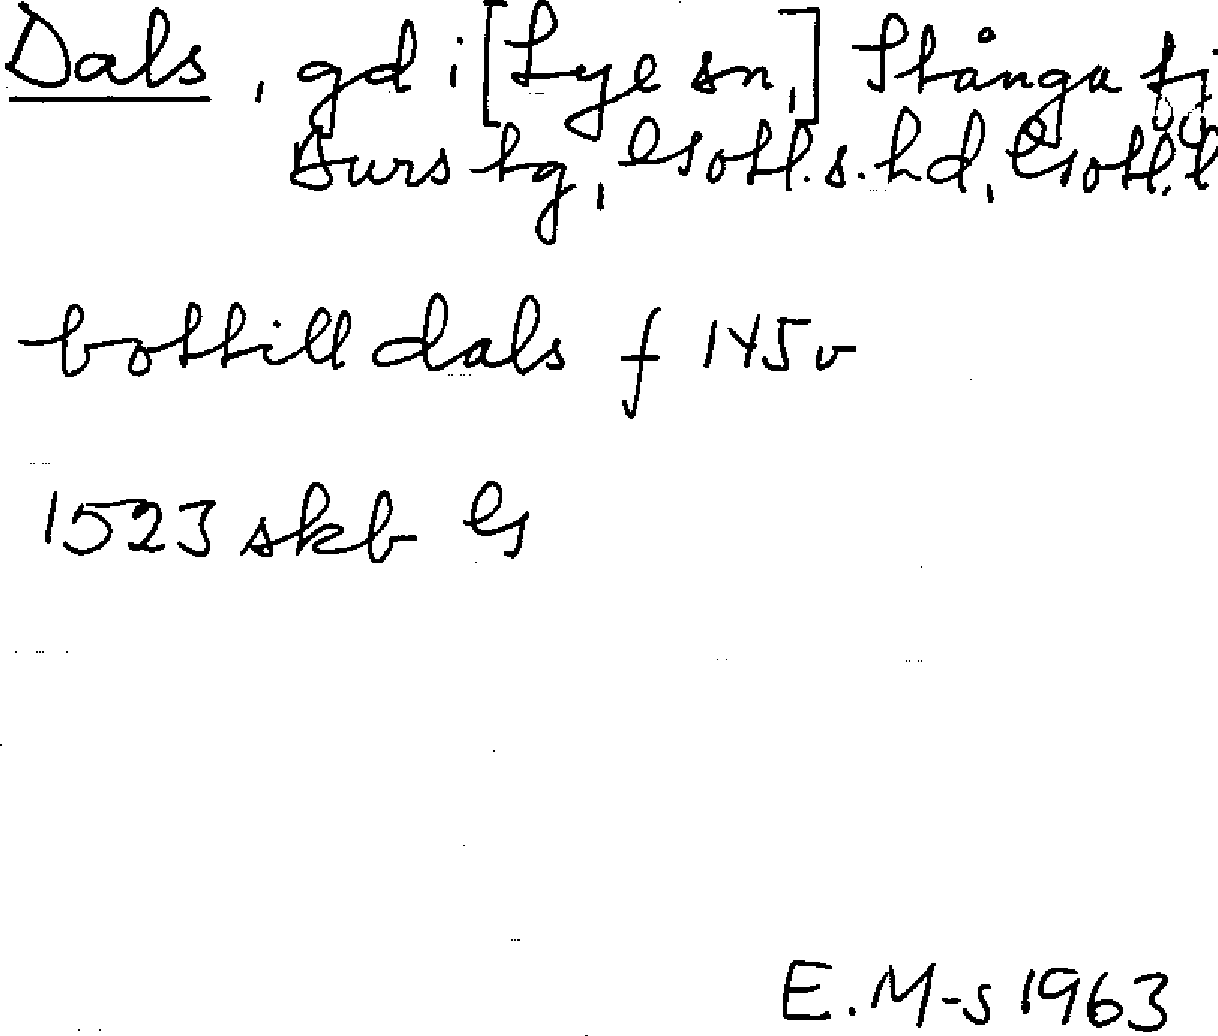 Dals, gd i [Lye sn,] Stånga tj
Burs tg, Gotl. s. hd, Gotl. l
bothill dals f 145v
1523 skb G
E. M-s 1963